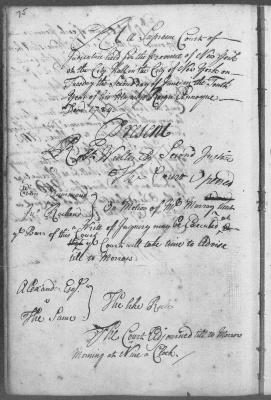 75
At a Supream Court of
Judicature held for the Province of New York
at the City Hall in the City of New York on
Tuesday the Second day of June in the Tenth
Year of his
Present
Robt Walter Esqr Second Justice
The Court Opened
On Motion of Mr Murray
a Writt of Inquiry may be Executed at
ye Barr of this Court
ye Court will take time to Advise
till to Morrow
Alexandr Esqr.
v
The Same
The like Rule
The Court Adjourned till to Morrow
Morning at Nine a Clock.